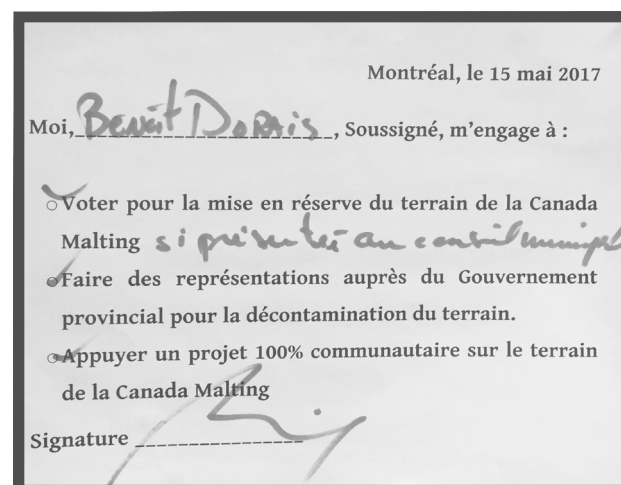 Montréal, le 15 mai 2017
Moi, Benoît Dorais, Soussigné, m'engage à :
○ Voter pour la mise en réserve du terrain de la Canada
Malting si présenté au conseil municipal
○ Faire des représentations auprès du Gouvernement
provincial pour la décontamination du terrain.
○ Appuyer un projet 100% communautaire sur le terrain
de la Canada Malting
Signature